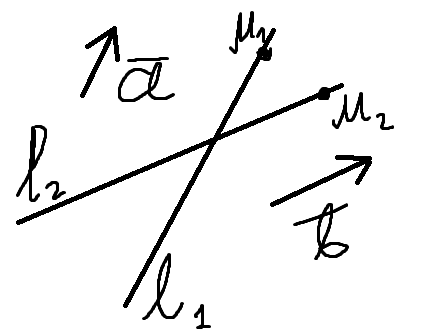 M₁
a̅
M₂
l₂
b̅
l₁